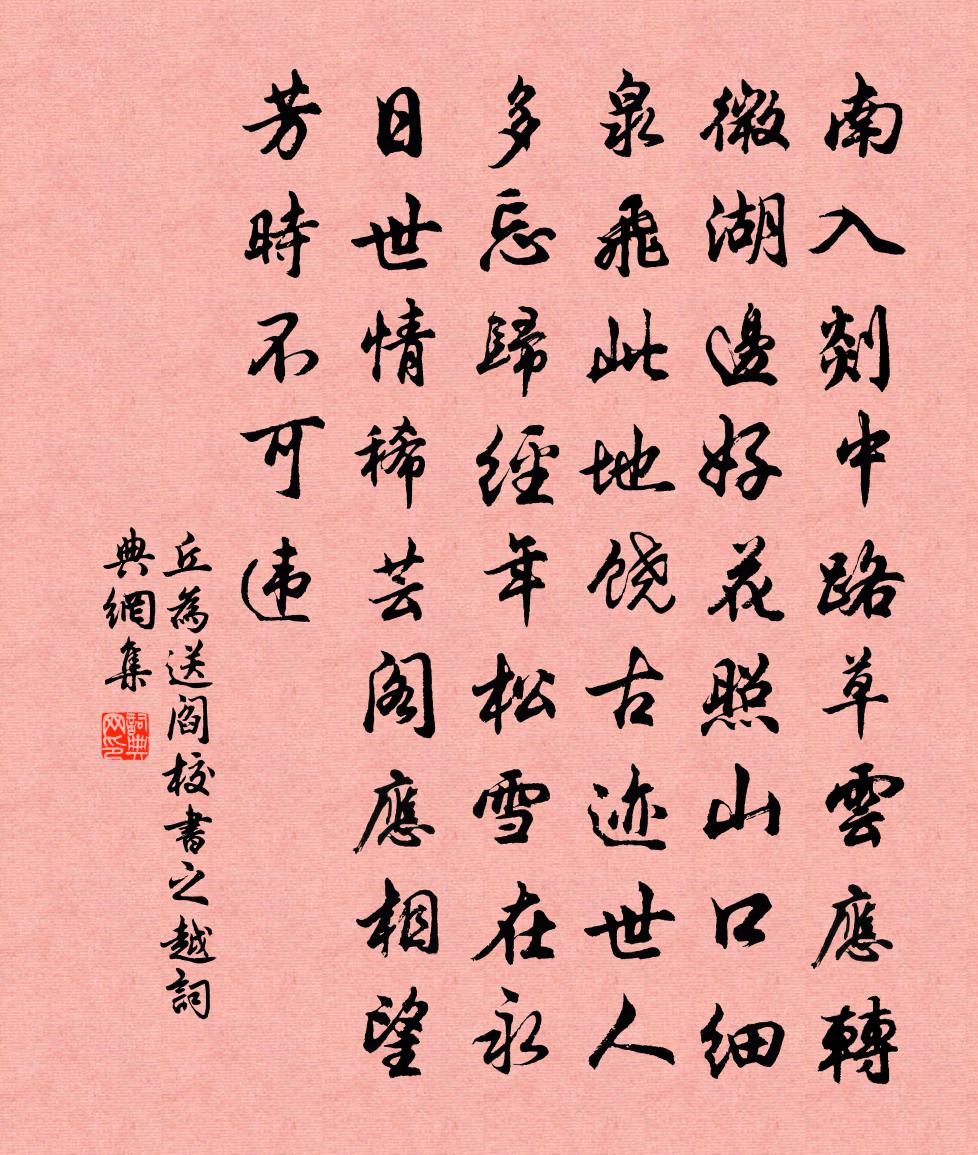 南入剡中路草雲應轉
微湖邊好花照山口細
泉飛此地饶古迹世人
多忘歸經年松雪在永
日世情稀芸阁應相望
芳時不可违
丘為送阎校書之越詞
典網集
詞典网印